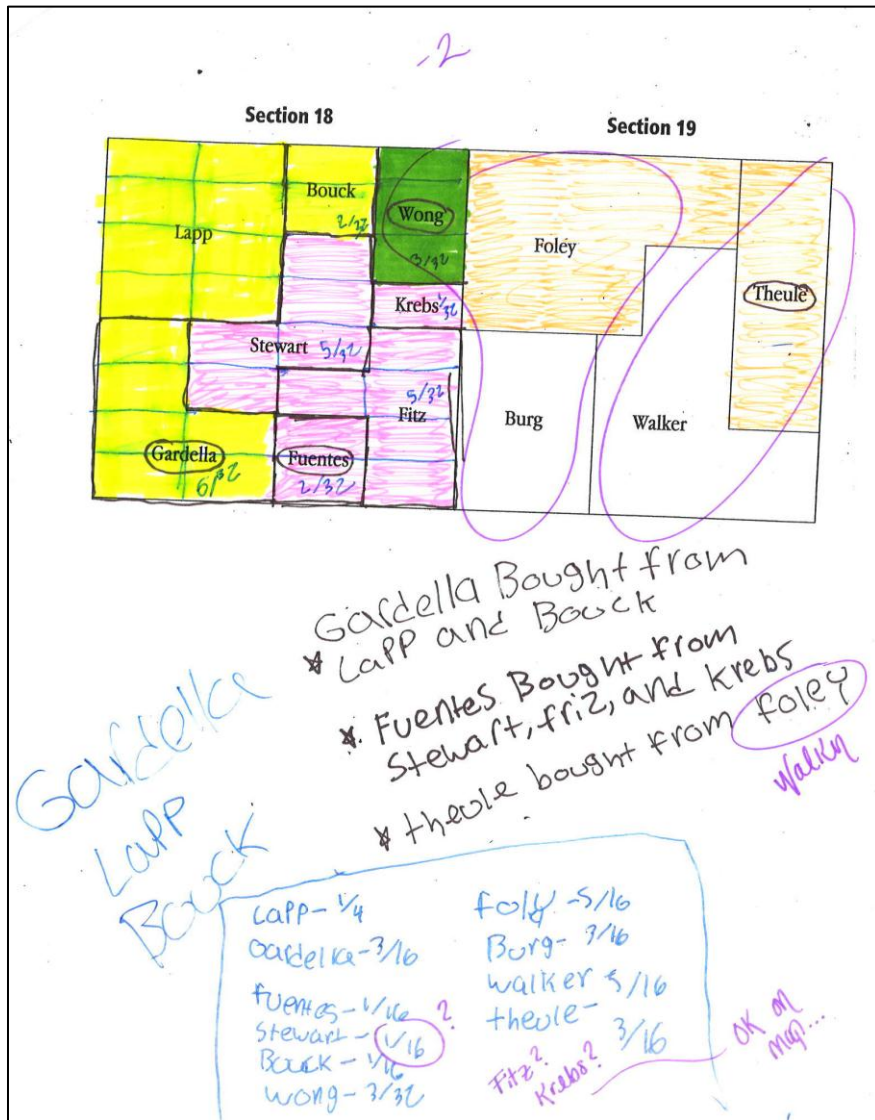 -2
Section 18
Section 19
Bouck
2/32
Wong
3/32
Lapp
Foley
Krebs 1/32
Theule
Stewart 5/32
5/32
Fitz
Burg
Walker
Gardella
6/32
Fuentes
2/32
Gardella Bought from
* Lapp and Bouck
* Fuentes Bought from
Stewart, friz, and Krebs
* theule bought from foley
Walker
Gardella
Lapp
Bouck
Lapp- 1/4
Gardella- 3/16
fuentes- 1/16
Stewart- 1/16 ?
Bouck- 1/16
Wong- 3/32
foly -5/16
Burg- 3/16
walker 5/16
theule- 3/16
Fitz?
Krebs?
OK on
map...